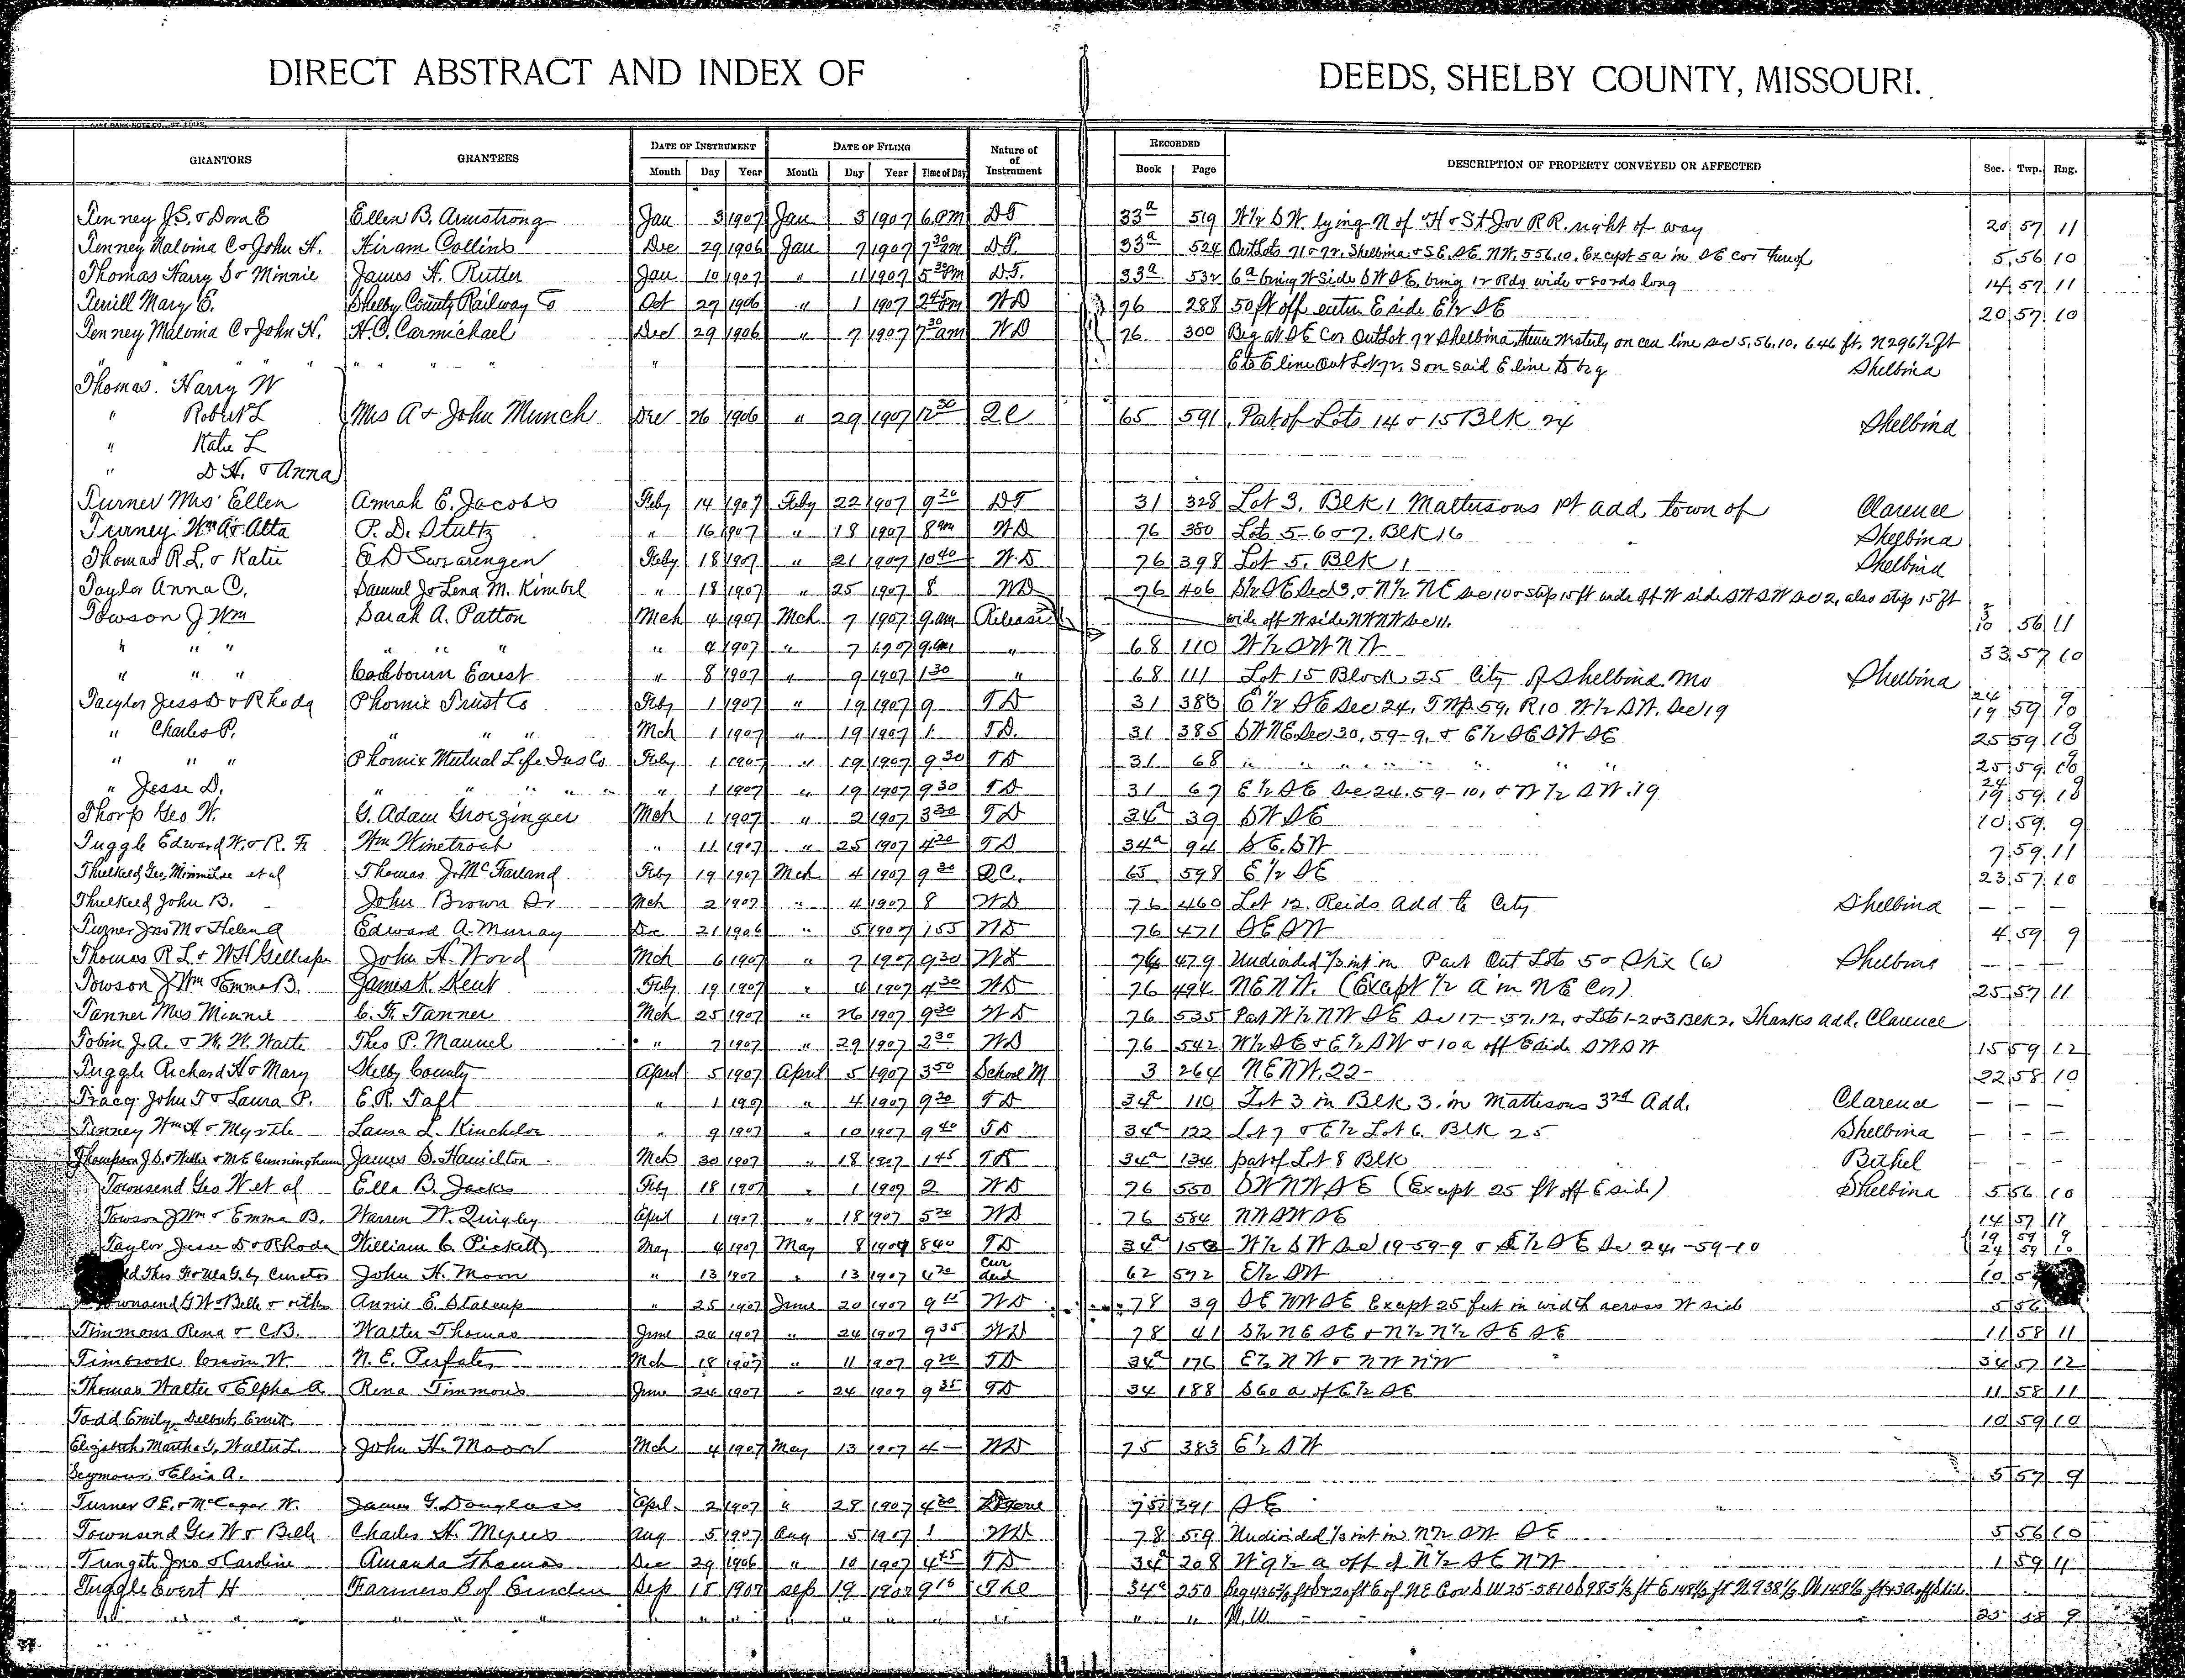 DIRECT ABSTRACT AND INDEX OF DEEDS, SHELBY COUNTY, MISSOURI.
GRANTORS GRANTEES DATE OF INSTRUMENT DATE OF FILING Nature of of Instrument RECORDED DESCRIPTION OF PROPERTY CONVEYED OR AFFECTED Sec. Twp. Rng.
Month Day Year Month Day Year Time of Day Book Page
Tenney J.S. & Dora E Ellen B. Armstrong Jan 3 1907 Jan 3 1907 6.PM DT 33a 519 W½ SW. lying N of H & St Jov RR. right of way 20 57 11
Tenney Malvina C & John H. Hiram Collins Dec 29 1906 Jan 7 1907 7 30 am D.T. 33a 524 OutLots 71 & 72, Shelbina & SE. SE. NW. 5.56.10. Except 5a in SE cor thereof 5 56 10
Thomas Harry S & Minnie James H. Rutter Jan 10 1907 " 11 1907 5 30 PM D.T. 33a 532 6a being W Side SW SE, being 12 Rds wide & 80 rds long 14 57 11
Terrill Mary E. Shelby County Railway Co Oct 27 1906 " 1 1907 2 45 pm WD 76 288 50 ft off entire E side E½ SE 20 57 10
Tenney Malvina C & John H. H.C. Carmichael Dec 29 1906 " 7 1907 7 30 am WD 76 300 Beg at SE Cor OutLot 72 Shelbina, thence Westerly on cen line Sec 5.56.10. 646 ft. N 296½ ft
" " " " " " " " " E to E line Out Lot 72, S on said E line to beg Shelbina
Thomas. Harry W
" Robert L Mrs A & John Munch Dec 26 1906 " 29 1907 12 30 QC 65 591 Part of Lots 14 & 15 Blk 24 Shelbina
" Katie L
" D H. & Anna
Turner Mrs Ellen Amrah E. Jacobs Feby 14 1907 Feby 22 1907 9 20 DT 31 328 Lot 3, Blk 1 Mattersons 1st add, town of Clarence
Turney Wm A & Alta P. D. Stultz " 16 1907 " 18 1907 8 am WD 76 380 Lots 5-6 & 7. Blk 16 Shelbina
Thomas R.L. & Katie E D Swearengen Feby 18 1907 " 21 1907 10 40 W.D 76 398 Lot 5. Blk 1 Shelbina
Taylor Anna C. Samuel J & Lena M. Kimbel " 18 1907 " 25 1907 8 WD 76 406 S½ SE Sec 3, & N½ NE Sec 10 & Strip 15 ft wide off W side SW SW Sec 2, also strip 15 ft
Towson J Wm Sarah A. Patton Mch 4 1907 Mch 7 1907 9.am Release wide off W side NW NW Sec 11. 2 3 10 56 11
" " " " " " " 4 1907 " 7 1907 9.am " 68 110 W½ SW NW 33 57 10
" " " Cockbourn Earest " 8 1907 " 9 1907 1 30 " 68 111 Lot 15 Block 25 City of Shelbina. Mo Shelbina
Taylor Jess D & Rhoda Phoenix Trust Co Feby 1 1907 " 19 1907 9 T.D 31 383 E½ SE Sec 24. TWp. 59. R10 W½ SW. Sec 19 24 19 59 9 10
" Charles P. " " " Mch 1 1907 " 19 1907 1 T.D. 31 385 SW NE Sec 30, 59-9, & E½ SE SW SE 25 59
" " " Phoenix Mutual Life Ins Co Feby 1 1907 " 19 1907 9 30 T D 31 68 " " " " " " " 25 59
" Jesse D. " " " " " 1 1907 " 19 1907 9 30 T D 31 67 E½ SE Sec 24. 59-10, & W½ SW. 19 24 19 59 9 10
Thorp Geo W. G. Adam Grozinger Mch 1 1907 " 2 1907 3 30 T D 34a 39 SW SE 10 59 9
Tuggle Edward W. & R. F. Wm Winetroub " 11 1907 " 25 1907 4 20 T D 34a 94 SE. SW 7 59 11
Thulkeld Geo, Minnie Lee et al Thomas J. McFarland Feby 19 1907 Mch 4 1907 9 30 Q.C. 65 598 E½ SE 23 57 10
Thulkeld John B. John Brown Sr Mch 2 1907 " 4 1907 8 WD 76 460 Lot 12. Reids add to City Shelbina — — —
Turner Jno M & Helen A Edward A. Murray Dec 21 1906 " 5 1907 1 55 WD 76 471 SE SW 4 59 9
Thomas R L. & WH Gillespie John H. Wood Mch 6 1907 " 7 1907 9 30 WD 76 479 Undivided ⅓ int in Part Out Lots 5 & Six (6) Shelbina — — —
Towson J Wm & Emma B. James K. Kent Feby 19 1907 " 4 1907 4 30 WD 76 494 NE NW. (Except ½ a in NE Cor) 25 57 11
Tanner Mrs Minnie C. F. Tanner Mch 25 1907 " 26 1907 9 30 WD 76 535 Part W½ NW SE Sec 17-57.12, & Lots 1-2 & 3 Blk 2, Shanks add, Clarence
Tobin J.A. & W. W. Waite Theo P. Manuel " 7 1907 " 29 1907 2 30 WD 76 542 W½ SE & E½ SW & 10 a off E side SW SW 15 59 12
Tuggle Richard H & Mary Shelby County April 5 1907 April 5 1907 3 50 School M 3 264 NE NW. 22- 22 58 10
Tracy John T & Laura P. E.R. Taft " 1 1907 " 4 1907 9 20 T D 34a 110 Lot 3 in Blk 3. in Mattesons 3rd Add. Clarence — — —
Tenney Wm H & Myrtle Laura L. Kincheloe " 9 1907 " 10 1907 9 40 T D 34a 122 Lot 7 & E½ Lot 6. Blk 25 Shelbina — — —
Thompson J.S. & Willie & M E Cunningham James S. Hamilton Mch 30 1907 " 18 1907 1 45 T D 34a 134 part of Lot 8 Blk Bethel — — —
Townsend Geo W et al Ella B. Jacks Feby 18 1907 " 1 1907 2 WD 76 550 SW NW SE (Except 25 ft off E side) Shelbina 5 56 10
Towson J Wm & Emma B. Warren W. Quigley April 1 1907 " 18 1907 5 20 WD 76 584 NW SW SE 14 57 11
Taylor Jesse D & Rhoda William C. Pickett May 4 1907 May 8 1907 8 40 T D 34a 153 W½ SW Sec 19-59-9 & E½ SE Sec 24-59-10 19 59 9 24 59 10
Thos F & Ula G. by Curator John H. Moon " 13 1907 " 13 1907 4 20 Cur deed 62 592 E½ SW 10
Townsend G W & Belle & others Annie E. Stalcup " 25 1907 June 20 1907 9 15 WD 78 39 SE NW SE Except 25 feet in width across W side 5 56
Timmons Rena & C.B. Walter Thomas June 24 1907 " 24 1907 9 35 WD 78 41 S½ NE SE & N½ N½ SE SE 11 58 11
Timbrook W. N. E. Mch 18 1907 " 11 1907 9 20 T D 34a 176 E½ NW & NW NW 34 57 12
Thomas Walter & Elpha A. Rena Timmons June 24 1907 " 24 1907 9 35 T D 34 188 S 60 a of E½ SE 11 58 11
Todd Emily, Delbert, Emett, 10 59 10
Elizabeth, Martha J, Walter L. John H. Moon Mch 4 1907 May 13 1907 4 — WD 75 383 E½ SW
Seymour, & Elsie A. 5 57 9
Turner P E. & W. James G. Douglass April 2 1907 " 28 1907 4 30 75 391 SE
Townsend Geo W & Belle Charles H. Myers Aug 5 1907 Aug 5 1907 1 WD 78 59 Undivided ⅓ int in N½ SW SE 5 56 10
Tungate Jno & Caroline Amanda Thomas Dec 29 1906 " 10 1907 4 45 T D 34a 208 W 9½ a off of N½ SE NW 1 59 11
Tuggle Evert H Farmers B of Emden Sep 18 1907 Sep 19 1907 9 10 34a 250
" " " " " " " " " " " " " " " N.W. 25 58 9